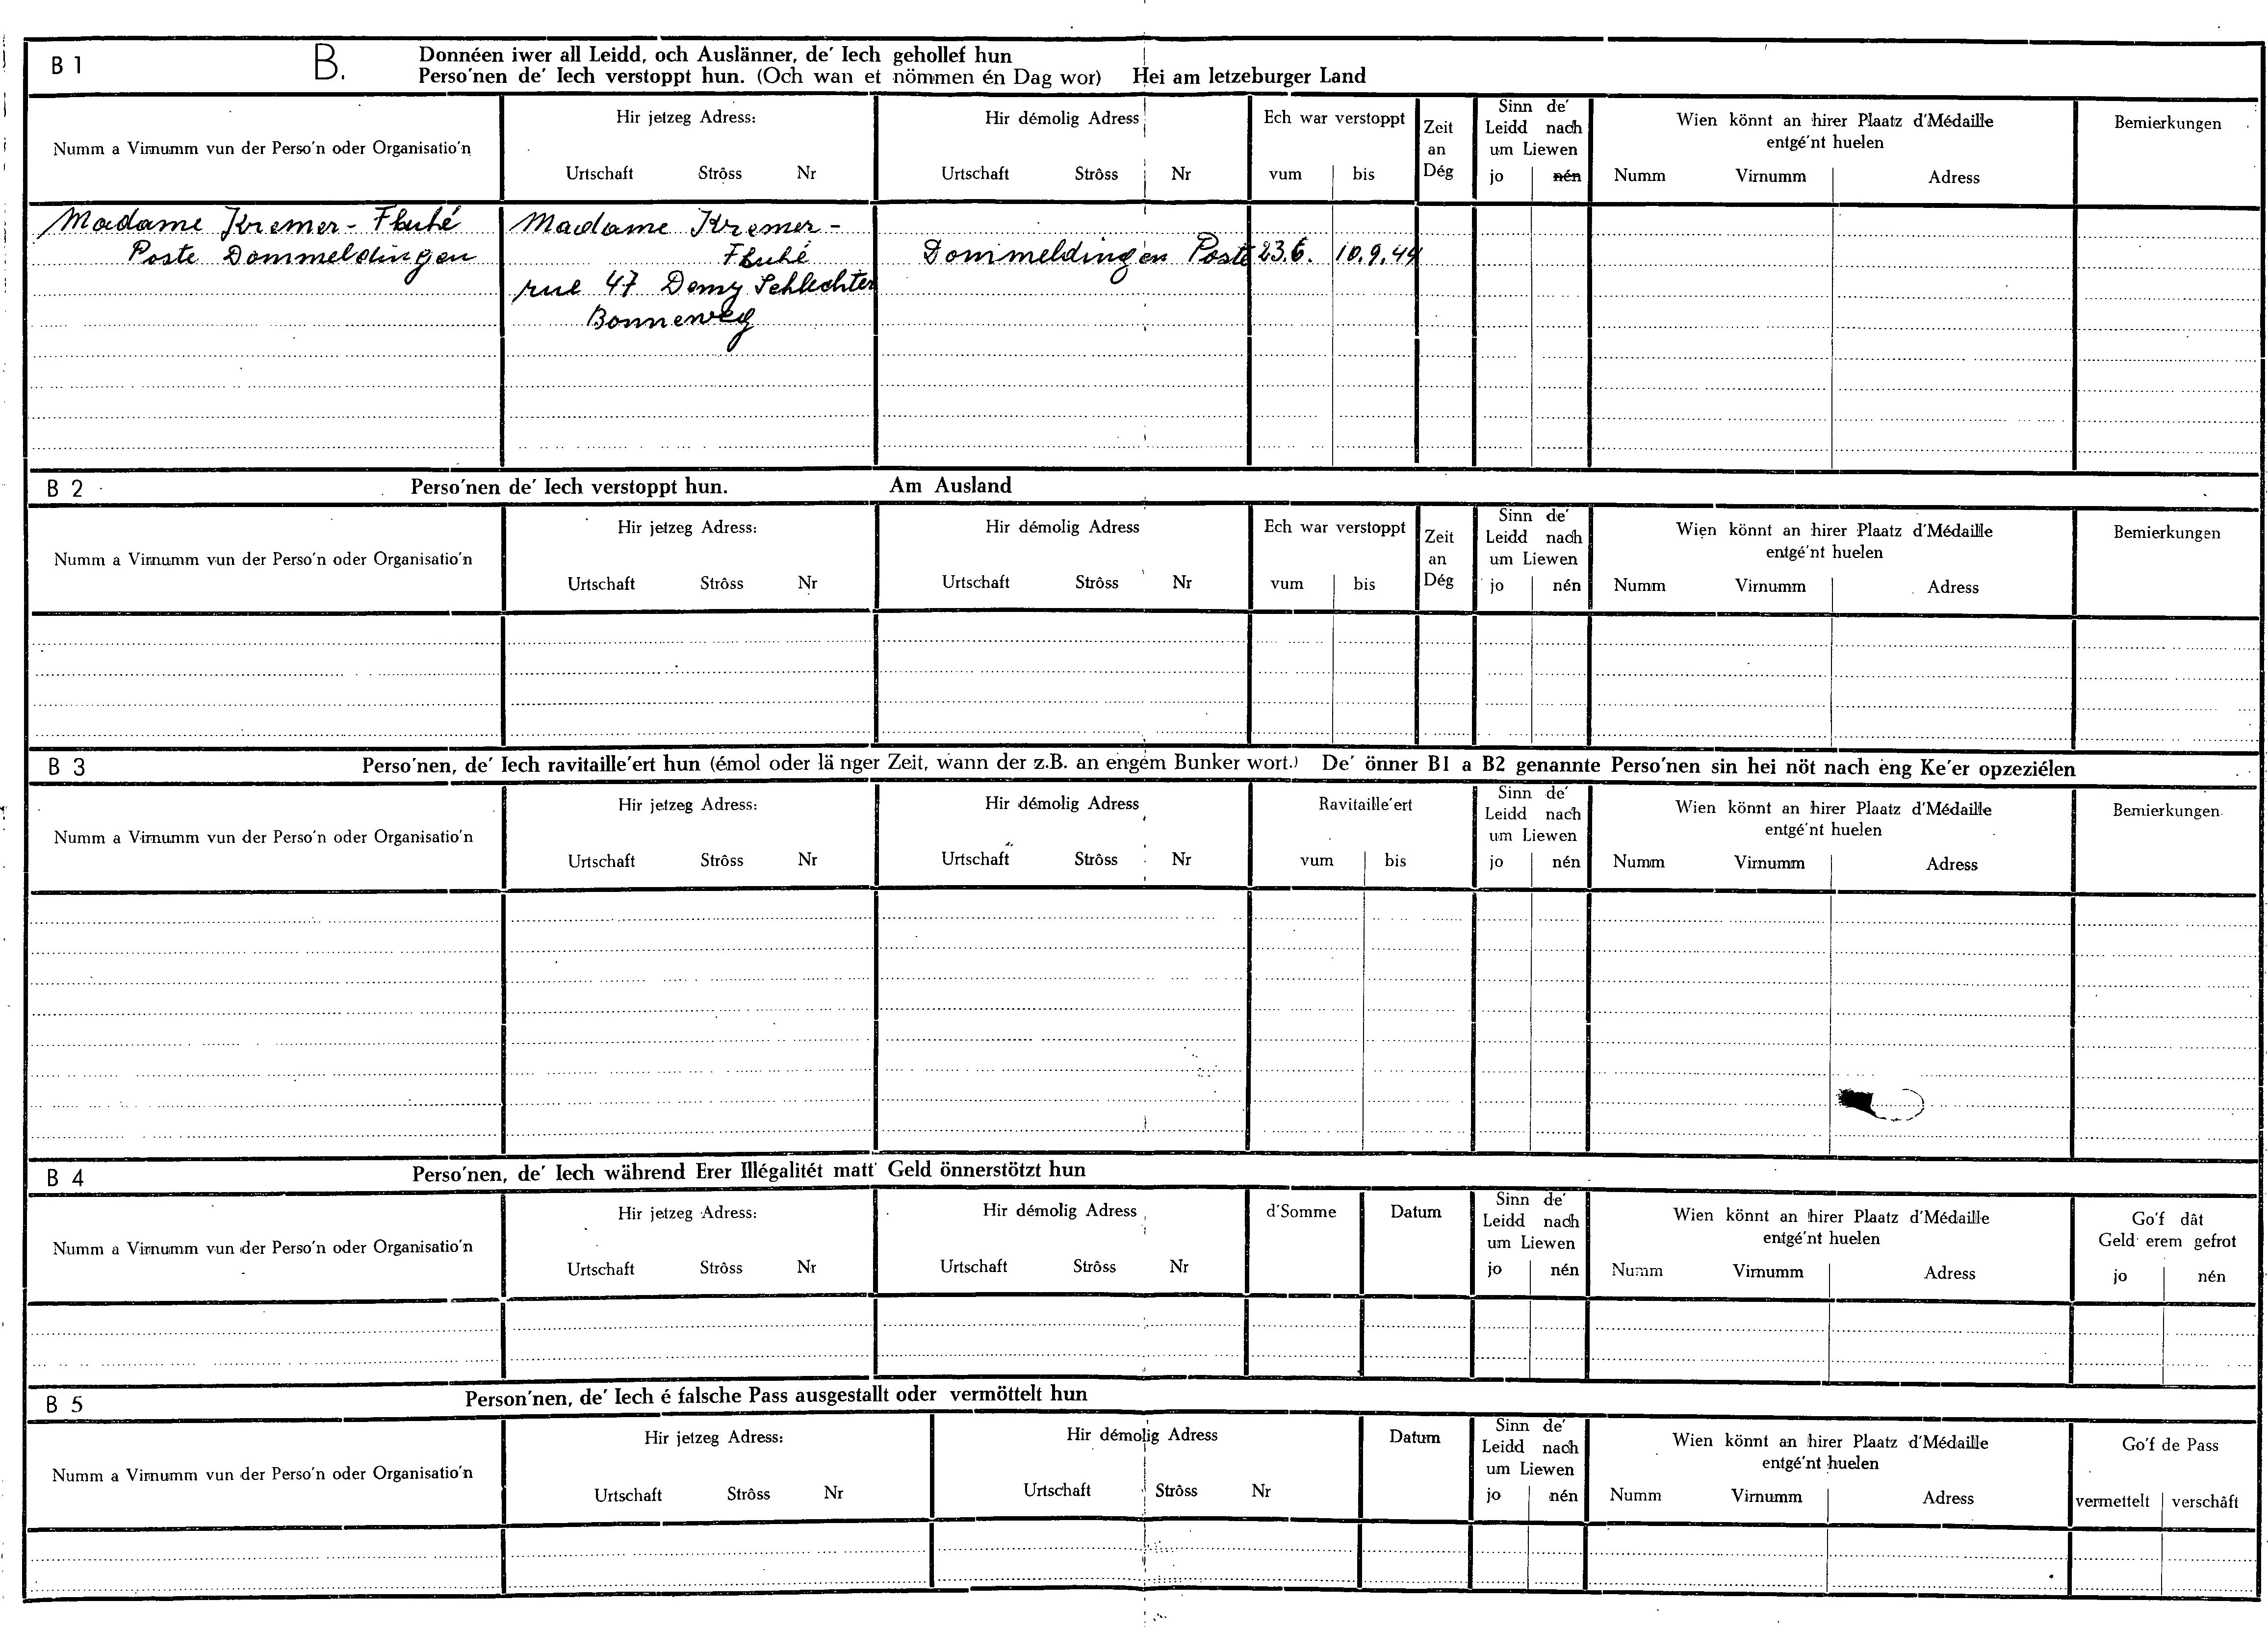 B 1 B. Donnéen iwer all Leidd, och Auslänner, de' Iech gehollef hun
Perso'nen de' Iech verstoppt hun. (Och wan et nömmen én Dag wor) Hei am letzeburger Land
Numm a Virnumm vun der Perso'n oder Organisatio'n
Hir jetzeg Adress:
Urtschaft Strôss Nr
Hir démolig Adress
Urtschaft Strôss Nr
Ech war verstoppt
vum bis
Zeit
an
Dég
Sinn de'
Leidd nach
um Liewen
jo nén
Wien könnt an hirer Plaatz d'Médaille
entgé'nt huelen
Numm Virnumm Adress
Bemierkungen
Madame Kremer-
Poste Dommeldingen
Madame Kremer-
rue 47 Demy Schlechter
Bonneweg
Dommeldingen Poste 23.6. 10.9.44
B 2 Perso'nen de' Iech verstoppt hun. Am Ausland
Numm a Virnumm vun der Perso'n oder Organisatio'n
Hir jetzeg Adress:
Urtschaft Strôss Nr
Hir démolig Adress
Urtschaft Strôss Nr
Ech war verstoppt
vum bis
Zeit
an
Dég
Sinn de'
Leidd nach
um Liewen
jo nén
Wien könnt an hirer Plaatz d'Médaille
entgé'nt huelen
Numm Virnumm Adress
Bemierkungen
B 3 Perso'nen, de' Iech ravitaille'ert hun (émol oder länger Zeit, wann der z.B. an engem Bunker wort.) De' önner B1 a B2 genannte Perso'nen sin hei nöt nach eng Ke'er opzeziélen
Numm a Virnumm vun der Perso'n oder Organisatio'n
Hir jetzeg Adress:
Urtschaft Strôss Nr
Hir démolig Adress
Urtschaft Strôss Nr
Ravitaille'ert
vum bis
Sinn de'
Leidd nach
um Liewen
jo nén
Wien könnt an hirer Plaatz d'Médaille
entgé'nt huelen
Numm Virnumm Adress
Bemierkungen
B 4 Perso'nen, de' Iech während Erer Illégalitét matt Geld önnerstötzt hun
Numm a Virnumm vun der Perso'n oder Organisatio'n
Hir jetzeg Adress:
Urtschaft Strôss Nr
Hir démolig Adress
Urtschaft Strôss Nr
d'Somme
Datum
Sinn de'
Leidd nach
um Liewen
jo nén
Wien könnt an hirer Plaatz d'Médaille
entgé'nt huelen
Numm Virnumm Adress
Go'f dât
Geld erem gefrot
jo nén
B 5 Person'nen, de' Iech é falsche Pass ausgestallt oder vermöttelt hun
Numm a Virnumm vun der Perso'n oder Organisatio'n
Hir jetzeg Adress:
Urtschaft Strôss Nr
Hir démolig Adress
Urtschaft Strôss Nr
Datum
Sinn de'
Leidd nach
um Liewen
jo nén
Wien könnt an hirer Plaatz d'Médaille
entgé'nt huelen
Numm Virnumm Adress
Go'f de Pass
vermettelt verschâft